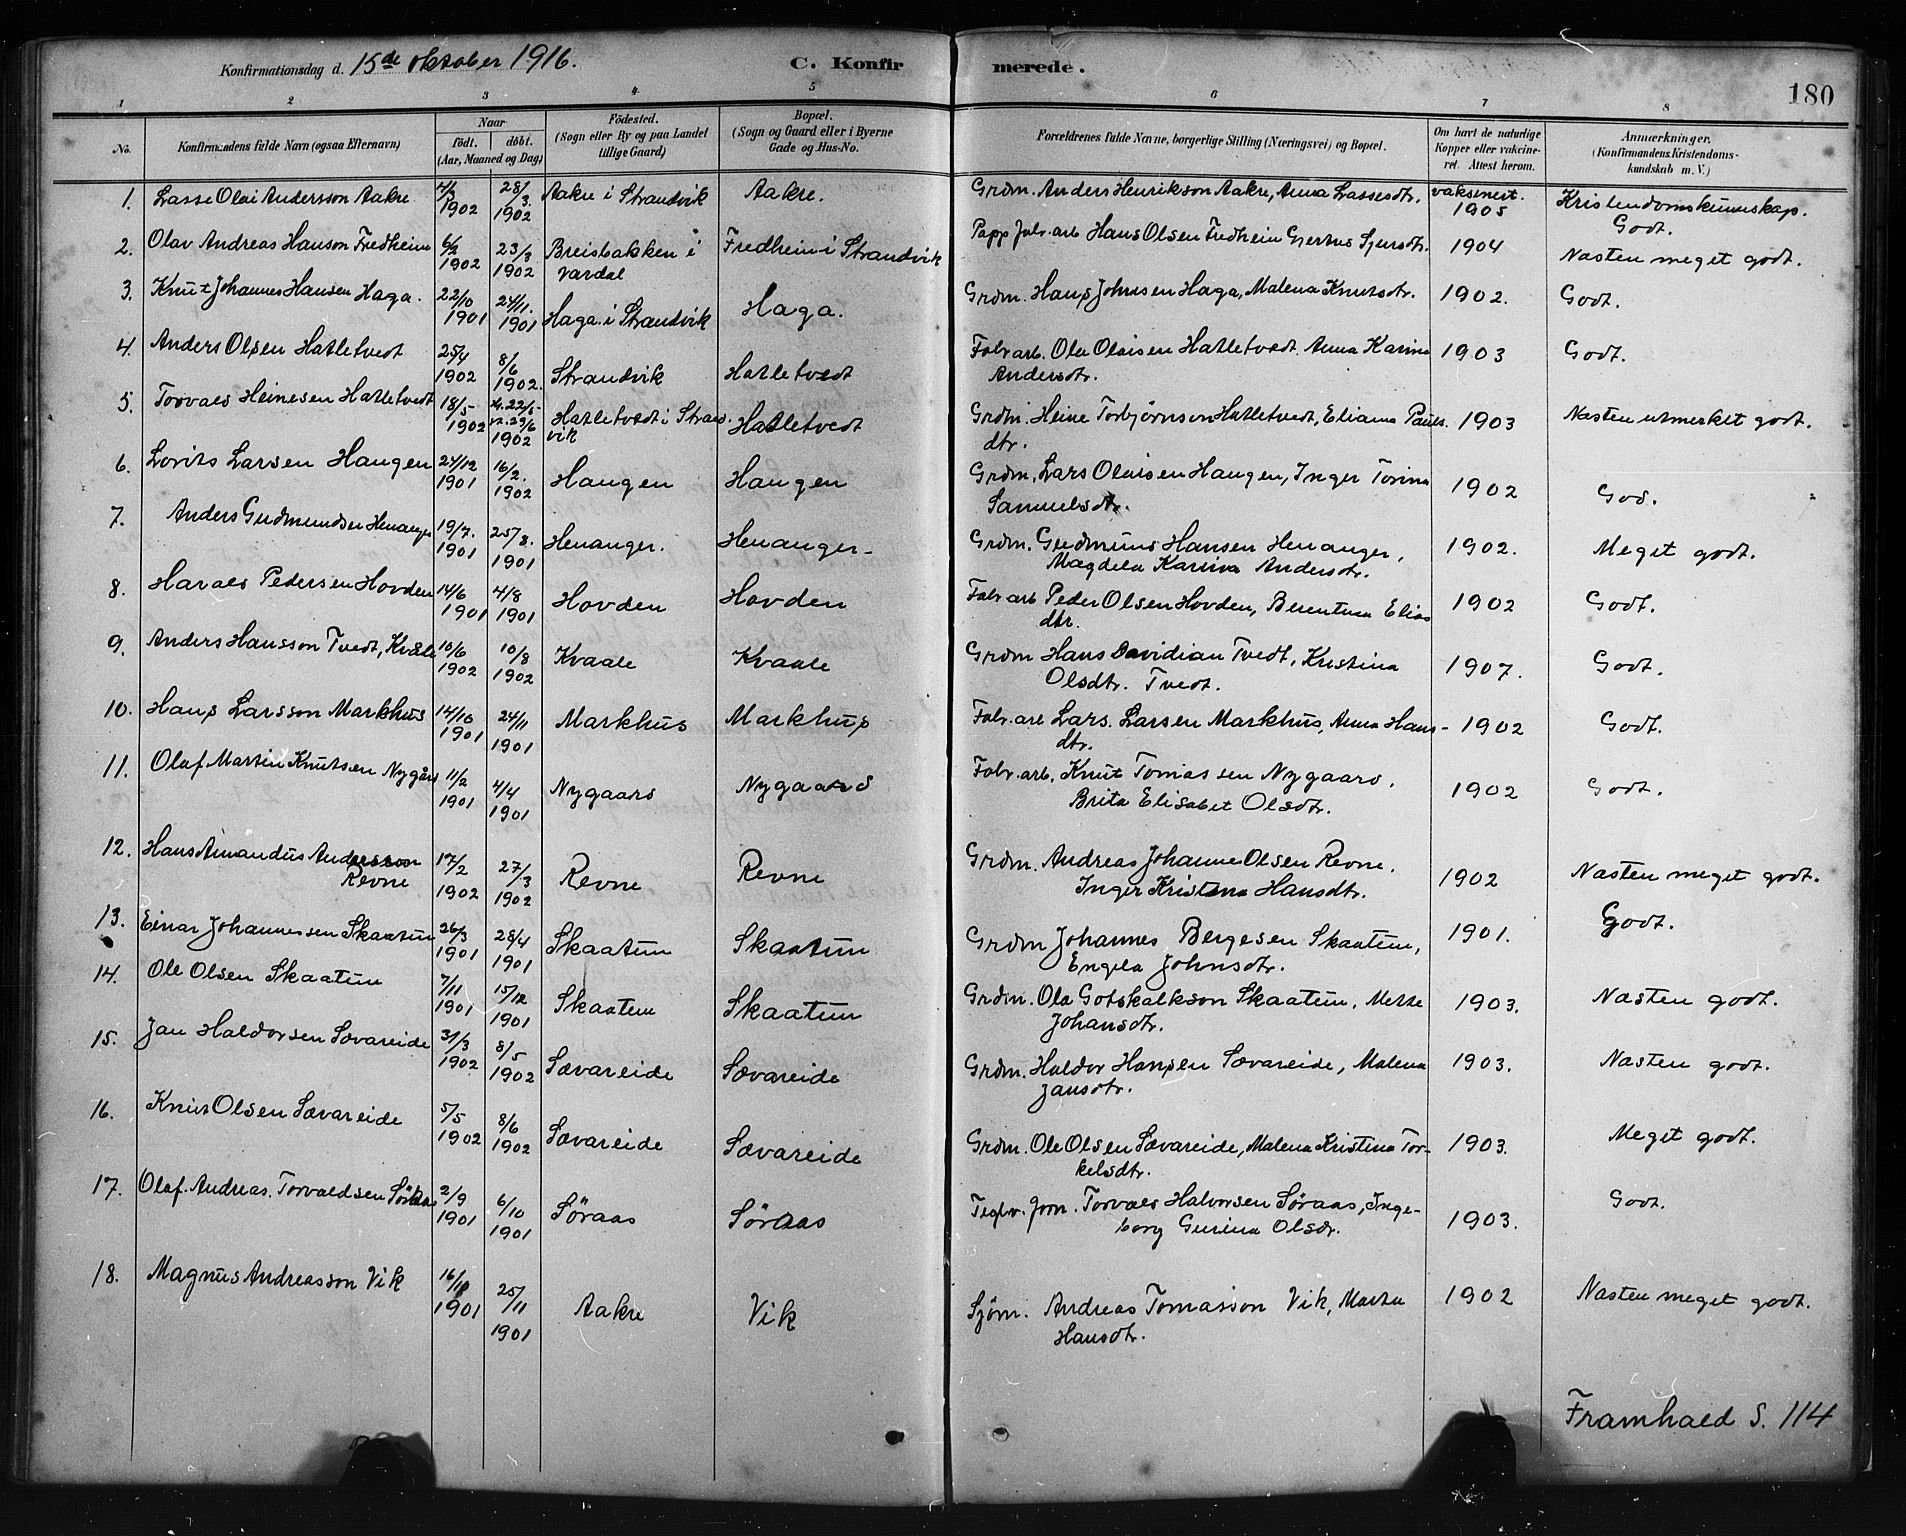 Konfirmationsdag d. 15de oktober 1916. C. Konfirmerede. 180
1 2 3 4 5 6 7 8
No. Konfirmandens fulde Navn (ogsaa Efternavn) Naar födt. döbt. (Aar, Maaned og Dag) Födested. (Sogn eller By og paa Landet tillige Gaard) Bopæl. (Sogn og Gaard eller i Byerne Gade og Hus-No. Forældrenes fulde Navne, borgerlige Stilling (Næringsvei) og Bopæl. Om havt de naturlige Kopper eller vakcineret. Attest herom. Anmærkninger, (Konfirmandens Kristendomskundskab m. V.)
1. Lasse Olai Andersson Aakre 4/2 1902 28/3 1902 Aakre i Strandvik Aakre. Grdm. Anders Henrikson Aakre, Anna Lassesdtr. vaksinert. 1905 Kristendomskunnskap. Godt.
2. Olav Andreas Hanson Fredheim 6/2 1902 23/3 1902 Breibakken i Vardal Fredheim i Strandvik Papp fabr. arb Hans Olsen Fredheim Gjertrus Sjursdtr. 1904 Nasten meget godt.
3. Knut Johannes Hansen Haga. 22/10 1901 24/11 1901 Haga i Strandvik Haga. Grdm. Hans Johnsen Haga, Malena Knutsdtr. 1902. Godt.
4. Anders Olsen Hatletvedt 25/4 1902 8/6 1902. Strandvik Hatletvedt Fabr arb. Ola Olaisen Hatletvedt. Anna Karina Andersdtr. 1903 Godt.
5. Torvald Heinesen Hatletvedt 18/5 1902 22/5 29/6 1902 Hatletvedt i Strandvik Hatletvedt Grdm. Heine Torbjørnson Hatletvedt, Eliana Paulsdtr. 1903 Nasten utmerket godt.
6. Lovits Larsen Haugen 24/12 1901 16/2. 1902 Haugen Haugen Grdm. Lars Olaisen Haugen, Inger Torina Samuelsdtr. 1902 God.
7. Anders Gudmundsen Henanger 19/7. 1901 25/8. 1901 Henanger. Henanger Grdm. Gudmund Hansen Henanger, Magdela Karina Andersdtr. 1902. Meget godt.
8. Harald Pedersen Hovden 14/6 1901 4/8 1901 Hovden Hovden Fabr arb Peder Olsen Hovden, Berentina Eliasdtr. 1902 Godt.
9. Anders Hansson Tvedt, Kvåle 10/6 1902 10/8 1902 Kvaale Kvaale Grdm Hans Davidian Tvedt, Kristina Olsdtr. Tvedt. 1907. Godt.
10. Hans Larsson Markhus 14/10 1901 24/11 1901 Markhus Markhus Fabr. arb Lars Larsen Markhus, Anna Hansdtr. 1902 Godt.
11. Olaf Martin Knutsen Nygård 11/2 1901 4/4 1901 Nygaard Nygaard Fabr. arb. Knut Tomassen Nygaard. Brita Elisabet Olsdtr. 1902 Godt.
12. Hans Amandus Andersson Revne 17/2 1902 27/3 1902 Revne Revne Grdm. Andreas Johannes Olsen Revne. Inger Kristina Hansdtr. 1902 Nasten meget godt.
13. Einar Johannessen Skaatun 26/3 1901 28/4 1901 Skaatun Skaatun Grdm Johannes Bergesen Skaatun, Engela Johnsdtr. 1901. Godt.
14. Ole Olsen Skaatun 7/11 1901 15/12 1901 Skaatun Skaatun Grdm. Ola Gotskalkson Skaatun, Mette Johansdtr. 1903. Nasten godt.
15. Jan Haldorsen Sævareide 31/3 1902 8/5 1902 Sævareide Sævareide Grdm. Haldor Hansen Sævareide, Malena Jansdtr. 1903. Nasten godt.
16. Knut Olsen Sævareide 5/5 1902 8/6 1902 Sævareide Sævareide Grdm. Ole Olsen Sævareide, Malena Kristina Torkelsdtr. 1903. Meget godt.
17. Olaf Andreas Torvaldsen Söraas 2/9 1901 6/10 1901 Söraas Söraas Torvald Halvorsen Søraas, Ingeborg Gurina Olsdr. 1903. Godt.
18. Magnus Andreasson Vik 16/11 1901 25/11 1901 Aakre Vik Sjøm. Andreas Tomasson Vik, Marta Hansdtr. 1902 Nasten meget godt.
Framhald S. 114